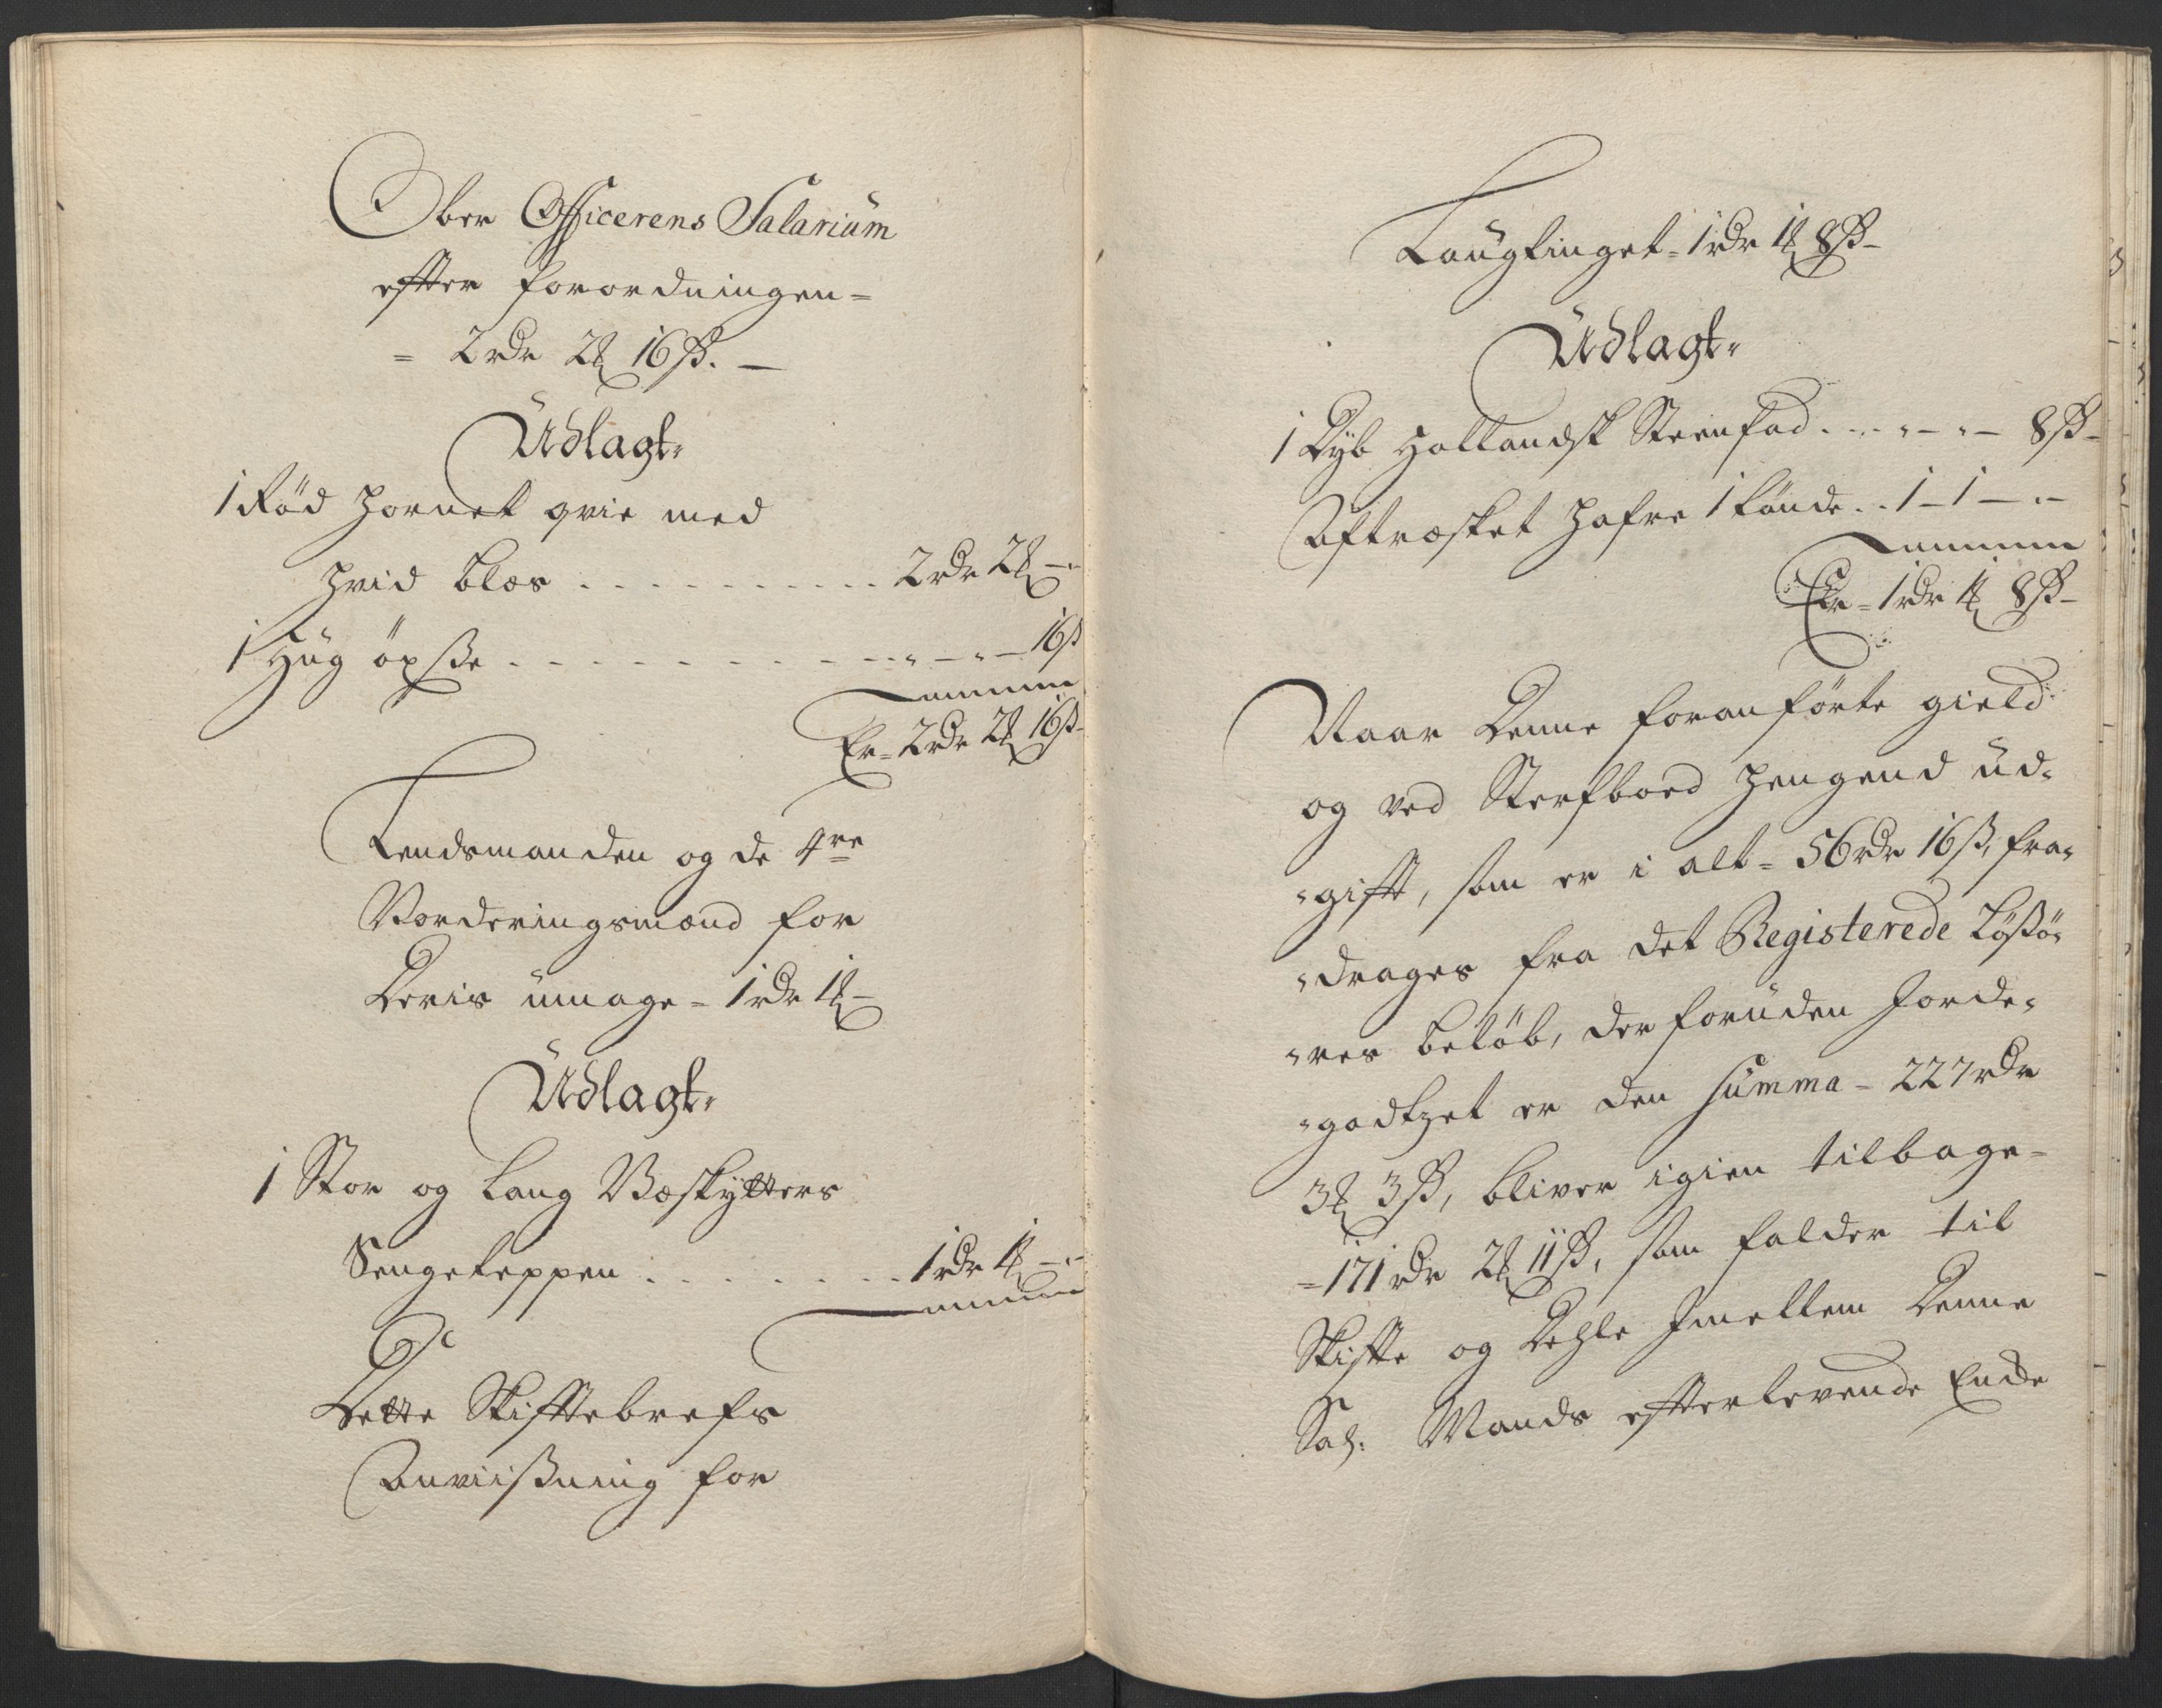 Ober Officerens Salarium
effter forordningen=
= 2 rdr 2 ort 16 ß. —
Udlagt.
1 Rød hornet qvie med
hvid blæs . . . . . . . . . . 2 rdr 2 ort — "
1 Hug öxße . . . . . . . . . . . " — " — 16 ß
Er = 2 rdr 2 ort 16 ß
Lendsmanden og de 4re
Vorderingsmænd for
Deris umage = 1 rdr 1 ort —
Udlagt.
1 Stor og lang Væskytters
Sengeteppen . . . . . . . . 1 rdr 1 ort — "
Dette Skifftebrefs
Anviißning for
Laugtinget = 1 rdr 1 ort 8 ß —
Udlagt.
1 Dyb Hollandsk Steenfad . . " — " — 8 ß —
Aftræsket Hafre 1 tønde . . 1 — 1 — " —
Er = 1 rdr 1 ort 8 ß —
Naar Denne foranførte gield
og ved Sterfboed hengend ud-
-gifft, som er i alt = 56 rdr 16 ß, fra-
-drages fra det Registerede Løßø-
-res beløb, der foruden Jorde-
-godtzet er den summa = 227 rdr
3 ort 3 ß, bliver igien tilbage =
= 171 rdr 2 ort 11 ß, som falder til
Skiffte og Dehle Jmellem Denne
Sal: Mands efterlevende Encke